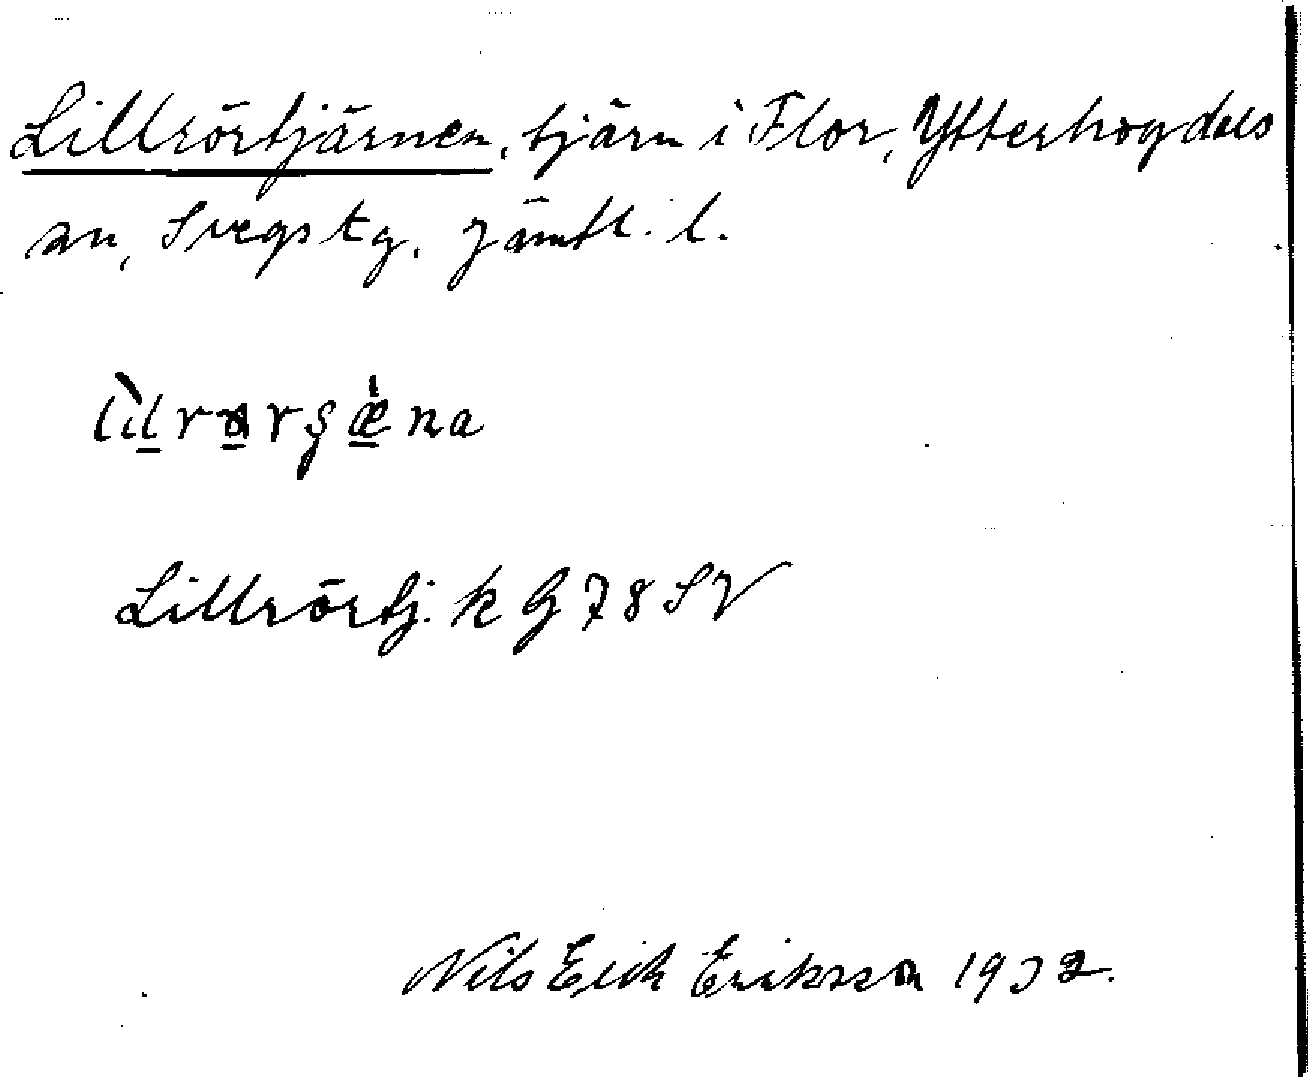 Lillrörtjärnen, tjärn i Flor, Ytterhogdals
sn, Svegs tg. Jämtl. l.
Lillrörtj. k G 78 SV
Nils Erik Eriksson 1932.